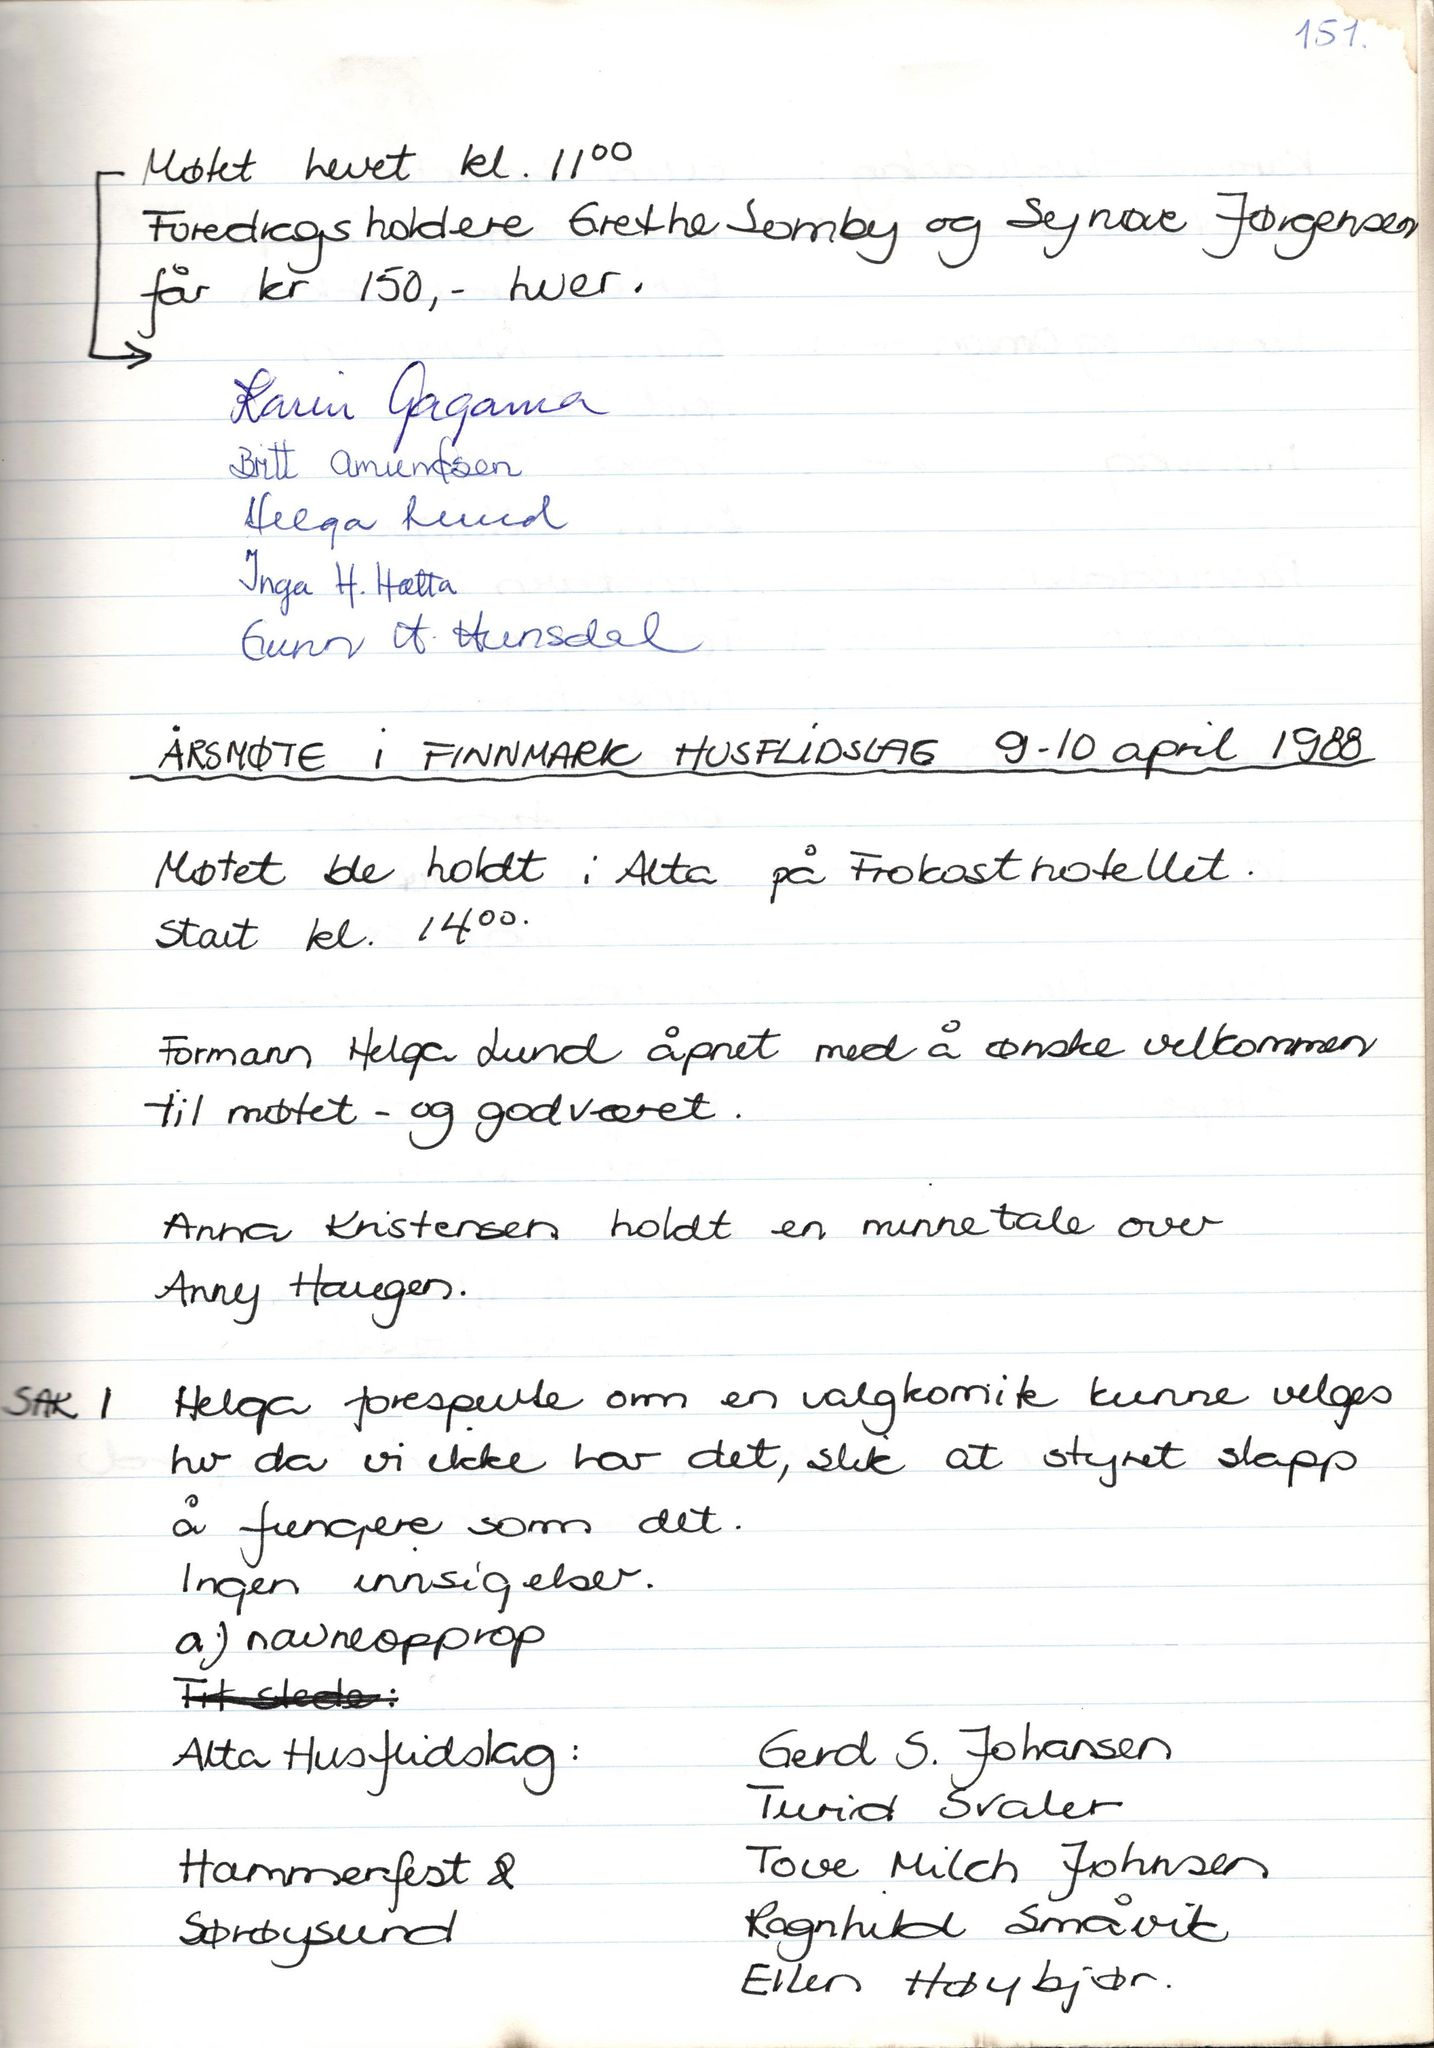 151.
Møtet hevet kl. 11⁰⁰
Foredragsholdere Grethe Somby og Synøve Jørgensen
får kr 150,- hver.
Karin Gagama
Britt Amundsen
Helga Lund
Inga H. Hætta
Gunn A. Hunsdal
ÅRSMØTE i FINNMARK HUSFLIDSLAG 9-10 april 1988
Møtet ble holdt i Alta på Frokosthotellet.
Start kl. 14⁰⁰.
Formann Helga Lund åpnet med å ønske velkommen
til møtet - og godværet.
Anna Kristensen holdt en minnetale over
Anny Haugen.
SAK 1 Helga forespurte om en valgkomite kunne velges
her da vi ikke har det, slik at styret slapp
å fungere som det.
Ingen innsigelser.
a) navneopprop
Til stede:
Alta Husflidslag: Gerd S. Johansen
Turid Svaler
Hammerfest & Tove Milch Johnsen
Sørøysund Ragnhild Småvik
Ellen Høybjør.